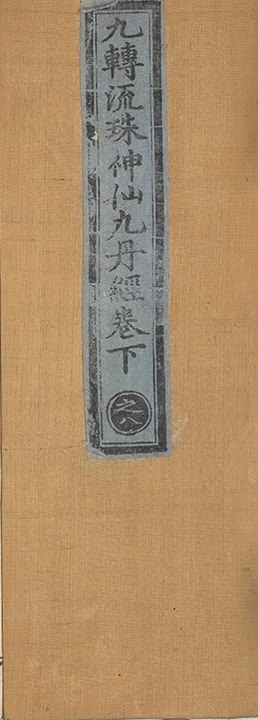 九轉流珠神仙九丹經卷下
之八